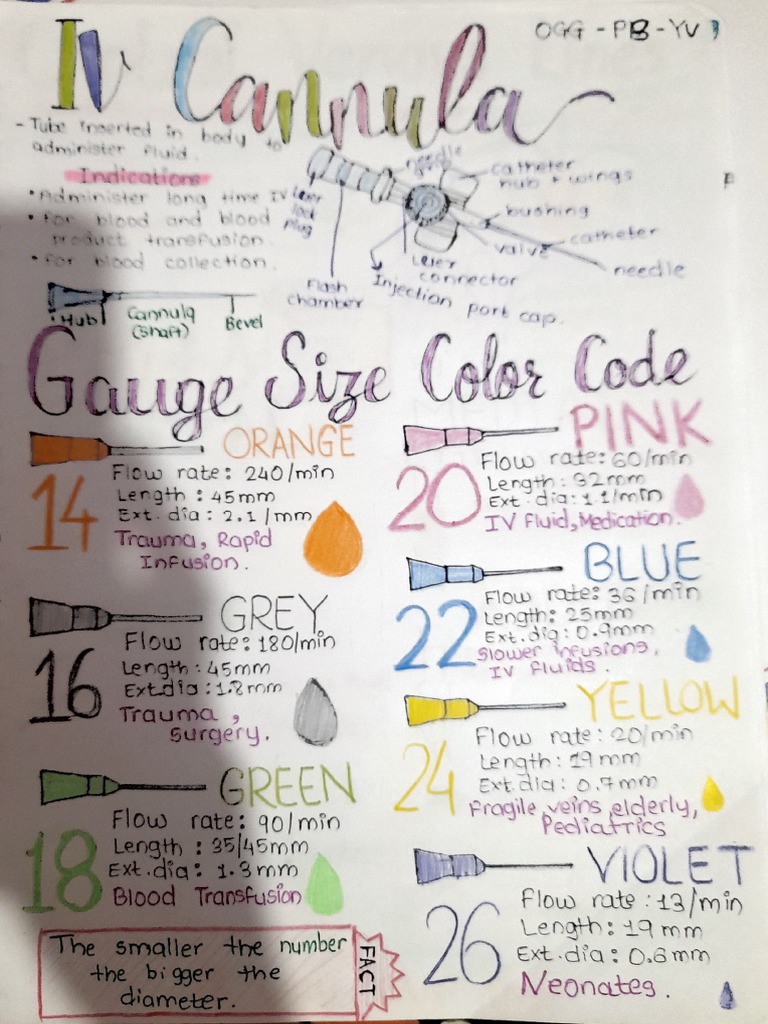 IV Cannula
OGG - PB - YV
- Tube inserted in body to
administer fluid.
Indications
• Administer long time IV
• for blood and blood
product transfusion.
• for blood collection.
needle
catheter
hub + wings
bushing
catheter
valve
needle
Luer
lock
plug
Luer
connector
Flash
chamber
Injection port cap.
Hub
Cannula
(shaft)
Bevel
Gauge Size Color Code
ORANGE
14
Flow rate: 240/min
Length : 45mm
Ext. dia: 2.1/mm
Trauma, Rapid
Infusion.
GREY
16
Flow rate: 180/min
Length : 45mm
Ext.dia : 1.8mm
Trauma,
Surgery.
GREEN
18
Flow rate: 90/min
Length : 35/45mm
Ext.dia : 1.3mm
Blood Transfusion
The smaller the number
the bigger the
diameter.
FACT
PINK
20
Flow rate: 60/min
Length: 32mm
Ext. dia: 1.1/min
IV Fluid, Medication.
BLUE
22
Flow rate: 36/min
Length: 25mm
Ext. dia: 0.9mm
Slower infusions,
IV fluids.
YELLOW
24
Flow rate: 20/min
Length: 19mm
Ext.dia: 0.7mm
Fragile veins, elderly,
Pediatrics
VIOLET
26
Flow rate: 13/min
Length: 19mm
Ext.dia: 0.6mm
Neonates.